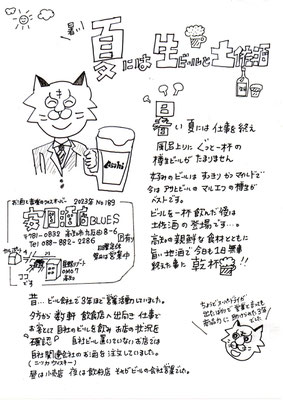 暑い
夏には生ビールと土佐酒
Asahi
お酒と音楽のウイスキーパー 2023年 No 189
安岡酒店 BLUES
〒781-0832 高知市九反田8-6
Tel 088-882-2286
日曜定休
昼は営業中
ココ
です
暑い夏には仕事を終え
風呂上りにぐっと一杯の
樽生ビールがたまりません
好みのビールはすっきりかマイルドで
今はアサヒビールのマルエフの樽生が
ベストです。
ビールを一杯飲んだ後は
土佐酒の登場です…。
高知の新鮮な食材とともに
旨い地酒で今日も1日無事
終えた事に乾杯
昔…ビール会社で3年ほど営業活動していました。
夕方から数軒飲食店へ出向き仕事で
お客として自社のビールを飲みお店の状況を
確認 自社ビール置いていないお店では
自社関連会社のお酒を注文していました。
(ニッカウイスキー)
昼は小売店 夜は飲食店 それがビールの会社営業でした。